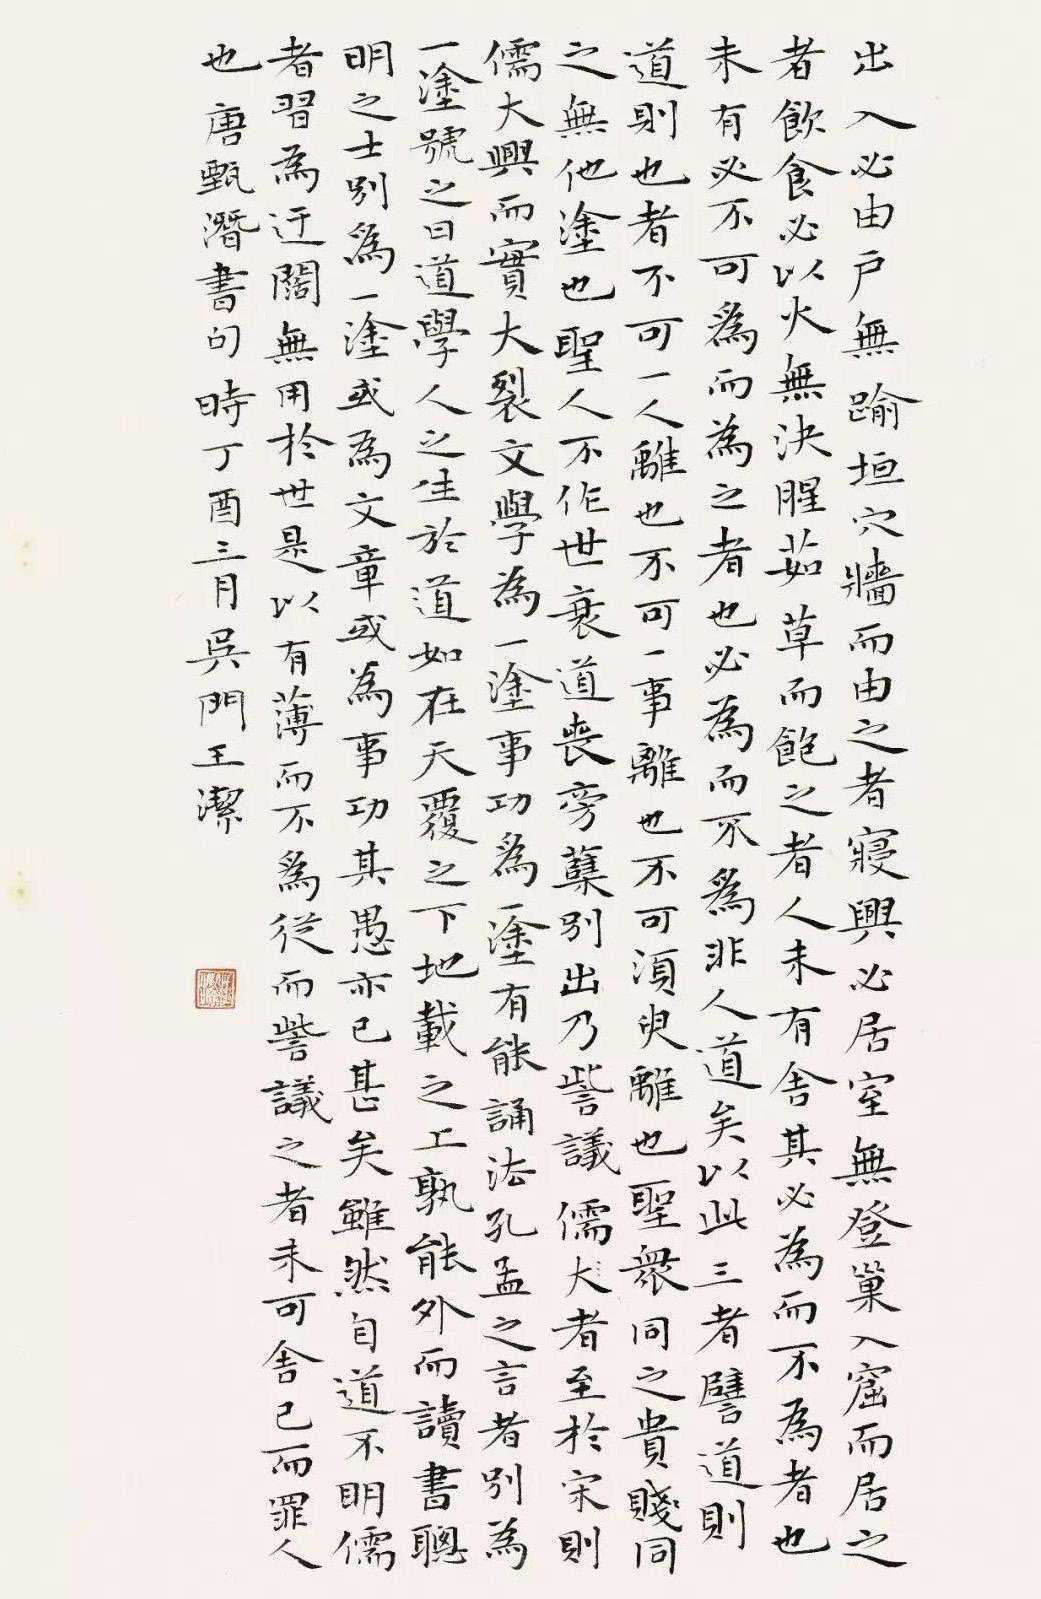 出入必由戶無踰垣穴牆而由之者寢興必居室無登巢入窟而居之
者飲食必以火無決腥茹草而飽之者人未有舍其必為而不為者也
未有必不可為而為之者也必為而不為非人道矣以此三者譬道則
道則也者不可一人離也不可一事離也不可須臾離也聖衆同之貴賤同
之無他塗也聖人不作世衰道喪旁蘖別出乃訾議儒大者至於宋則
儒大興而實大裂文學為一塗事功為一塗有能誦法孔孟之言者別為
一塗號之曰道學人之生於道如在天覆之下地載之上孰能外而讀書聰
明之士別為一塗或為文章或為事功其愚亦已甚矣雖然自道不明儒
者習為迂闊無用於世是以有薄而不為從而訾議之者未可舍己而罪人
也唐甄潛書句時丁酉三月吳門王潔